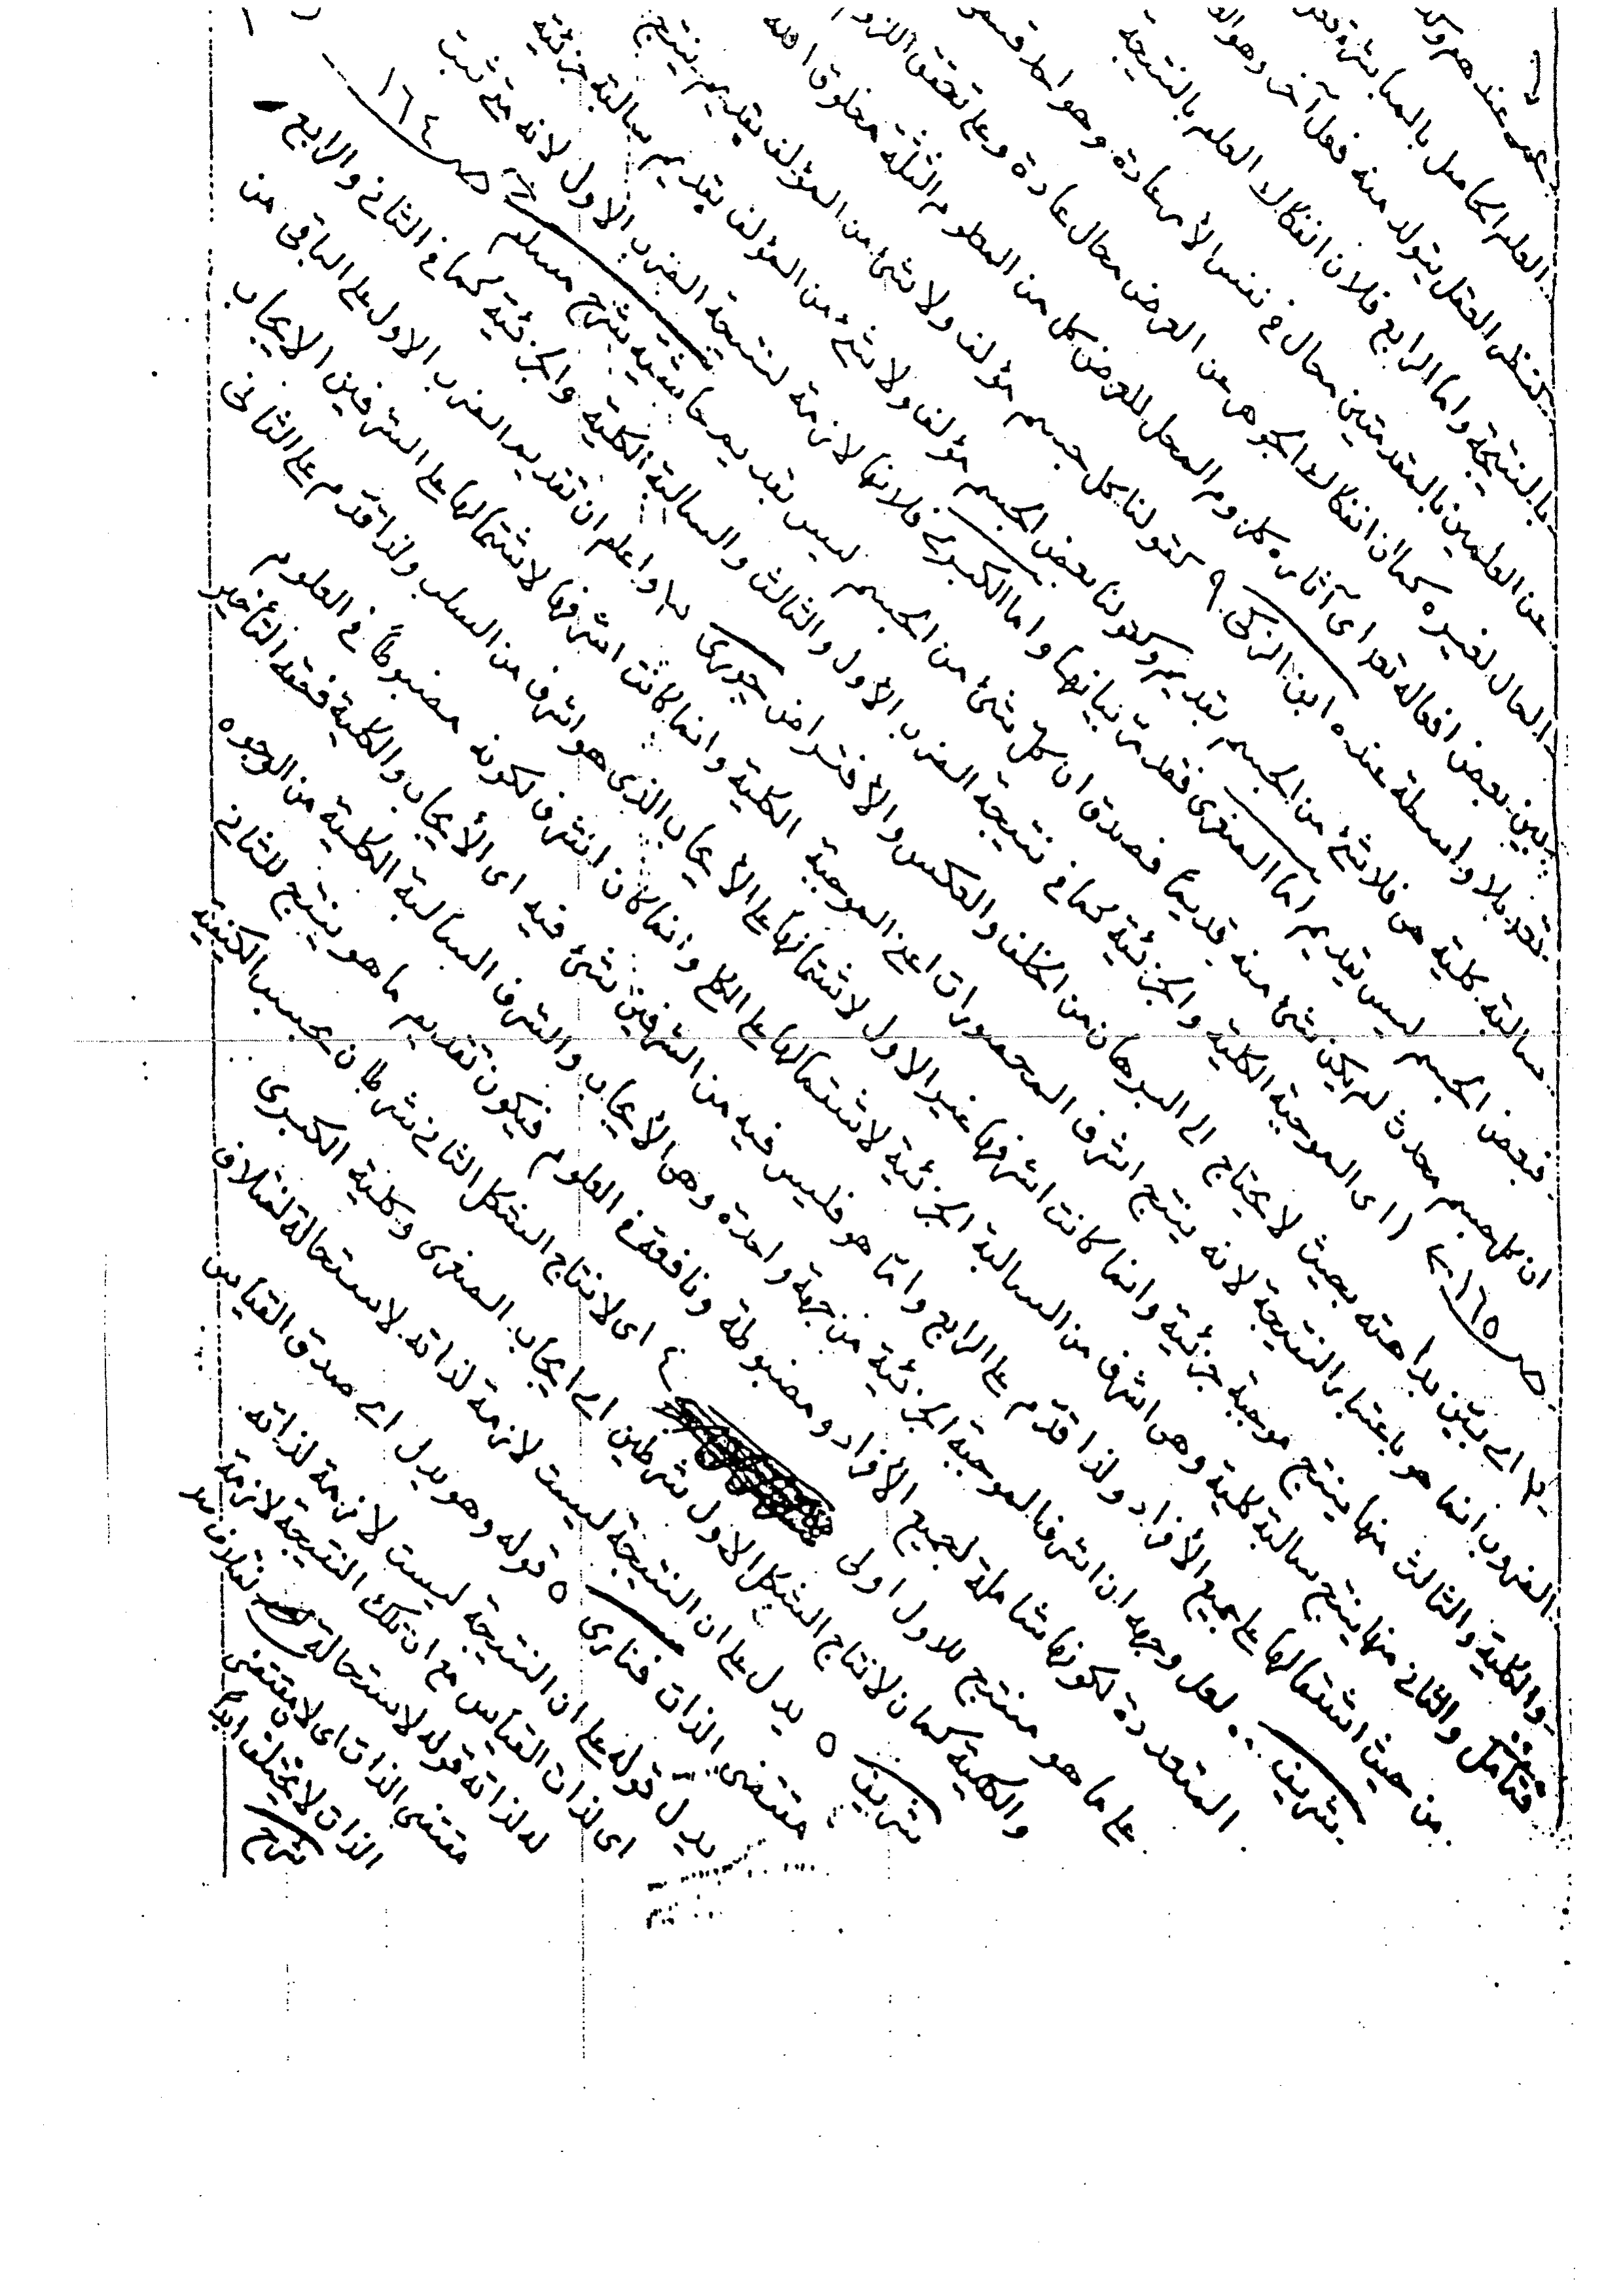 عندهم
العلم الحاصل بالمباشرة
كنظر العقل يتولد منه فعل آخر وهو
بالنتيجة واما الرابع فلان انفكاك العلم بالنتيجة
عن العلمين بالمقدمتين محال في نفس الأمر عادة وهو احد
المحال لغيره كما ان انفكاك الجوهر عن العرض محال عادة وعلى تحقق
بين بعض افعاله تعد اى آثاره كلزوم المحل للعرض كل من العلوم الثلثة مخلوق الله
تعد بلا واسطة عنده ابن الزكى ٩ كقولنا كل جسم مؤلف ولا شئ من المؤلف بقديم ينتج
سالبة كلية هى فلا شئ من الجسم بقديم وكقولنا بعض الجسم مؤلف ولا شئ من المؤلف بقديم سالبة جزئية
فبعض الجسم ليس بقديم اما الصغرى فقد مر بيانها واما الكبرى فلانها لازمة لنتيجة الضرب الاول لانه متى ثبت
ان كل جسم محدث لم يكن شئ منه قديمًا فصدق ان كل شئ من الجسم ليس بقديم حاشيه شرح مسلم ص ١٦٤
ص ١٦٥ اى الموجبة الكلية والجزئية كما في نتيجة الضرب الأول والثالث والسالبة الكلية والجزئية كما في الثاني والرابع
اى بين بداهته بحيث لا يحتاج الى البرهان من الخلف والعكس والأفتراض جورى اعلم ان تقديم الضرب الاول على الباقى من
الضروب انما هو باعتبار النتيجة لانه ينتج اشرف المحصورات اعنى الموجبة الكلية وانما كانت اشرفها لاشتمالها على الشرفين الايجاب
والكلية والثالث منها ينتج موجبة جزئية وانما كانت اشرفها غير الاول لاشتمالها على الأيجاب الذى هو اشرف من السلب ولذا قدم على الثانى
فتأمل والثانى منها ينتج سالبة كلية وهى اشرف من السالبة الجزئية لاشتمالها على الكل وانما كان اشرف لكونه مضبوطًا في العلوم
من حيث اشتمالها على جميع الأفراد ولذا قدم على الرابع واما هو فليس فيه من الشرفين شئ فيه اى الأيجاب والكلية فحقه التأخير
شريف .. لعل وجهه ان اشرف الموجبة الجزئية من جهة واحدة وهى الأيجاب والشرف السالبة الكلية من الوجوه
المتعددة لكونها شاملة لجميع الأفراد ومضبوطة ونافعة في العلوم فيكون تقديم ما هو ينتج للثاني
على ما هو منتج للاول اولى ٤ اى لانتاج الشكل الثانى شرطان بحسب الكيفية
والكلية كما ان لانتاج الشكل الاول شرطين اى ايجاب الصغرى وكلية الكبرى
شريف ٥ يدل على ان النتيجة ليست لازمة لذاته لاستحالة اختلاف
مقتضى الذات فنارى ٥ قوله وهو يدل اى صدق القياس
يدل قوله على ان النتيجة ليست لازمة لذاته
اى لذات القياس مع ان تلك النتيجة لازمة
له لذاته قوله لاستحالة اختلاف
مقتضى الذات اى لان مقتضى
الذات لا يختلف ابدًا
شرح